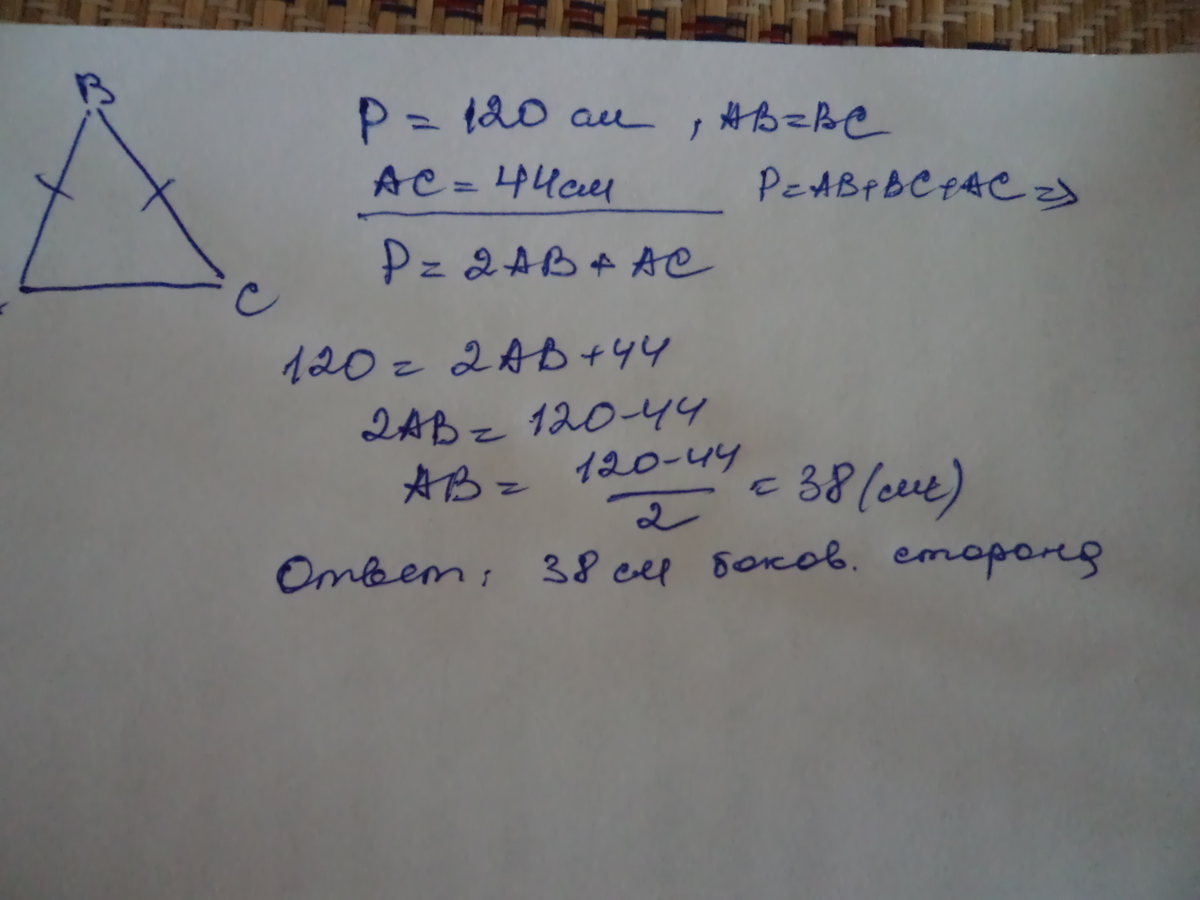 B
P = 120 см, AB = BC
AC = 44 см P = AB + BC + AC =>
P = 2AB + AC
C
120 = 2AB + 44
2AB = 120 - 44
AB = (120 - 44)/2 = 38 (см)
Ответ: 38 см боков. сторона